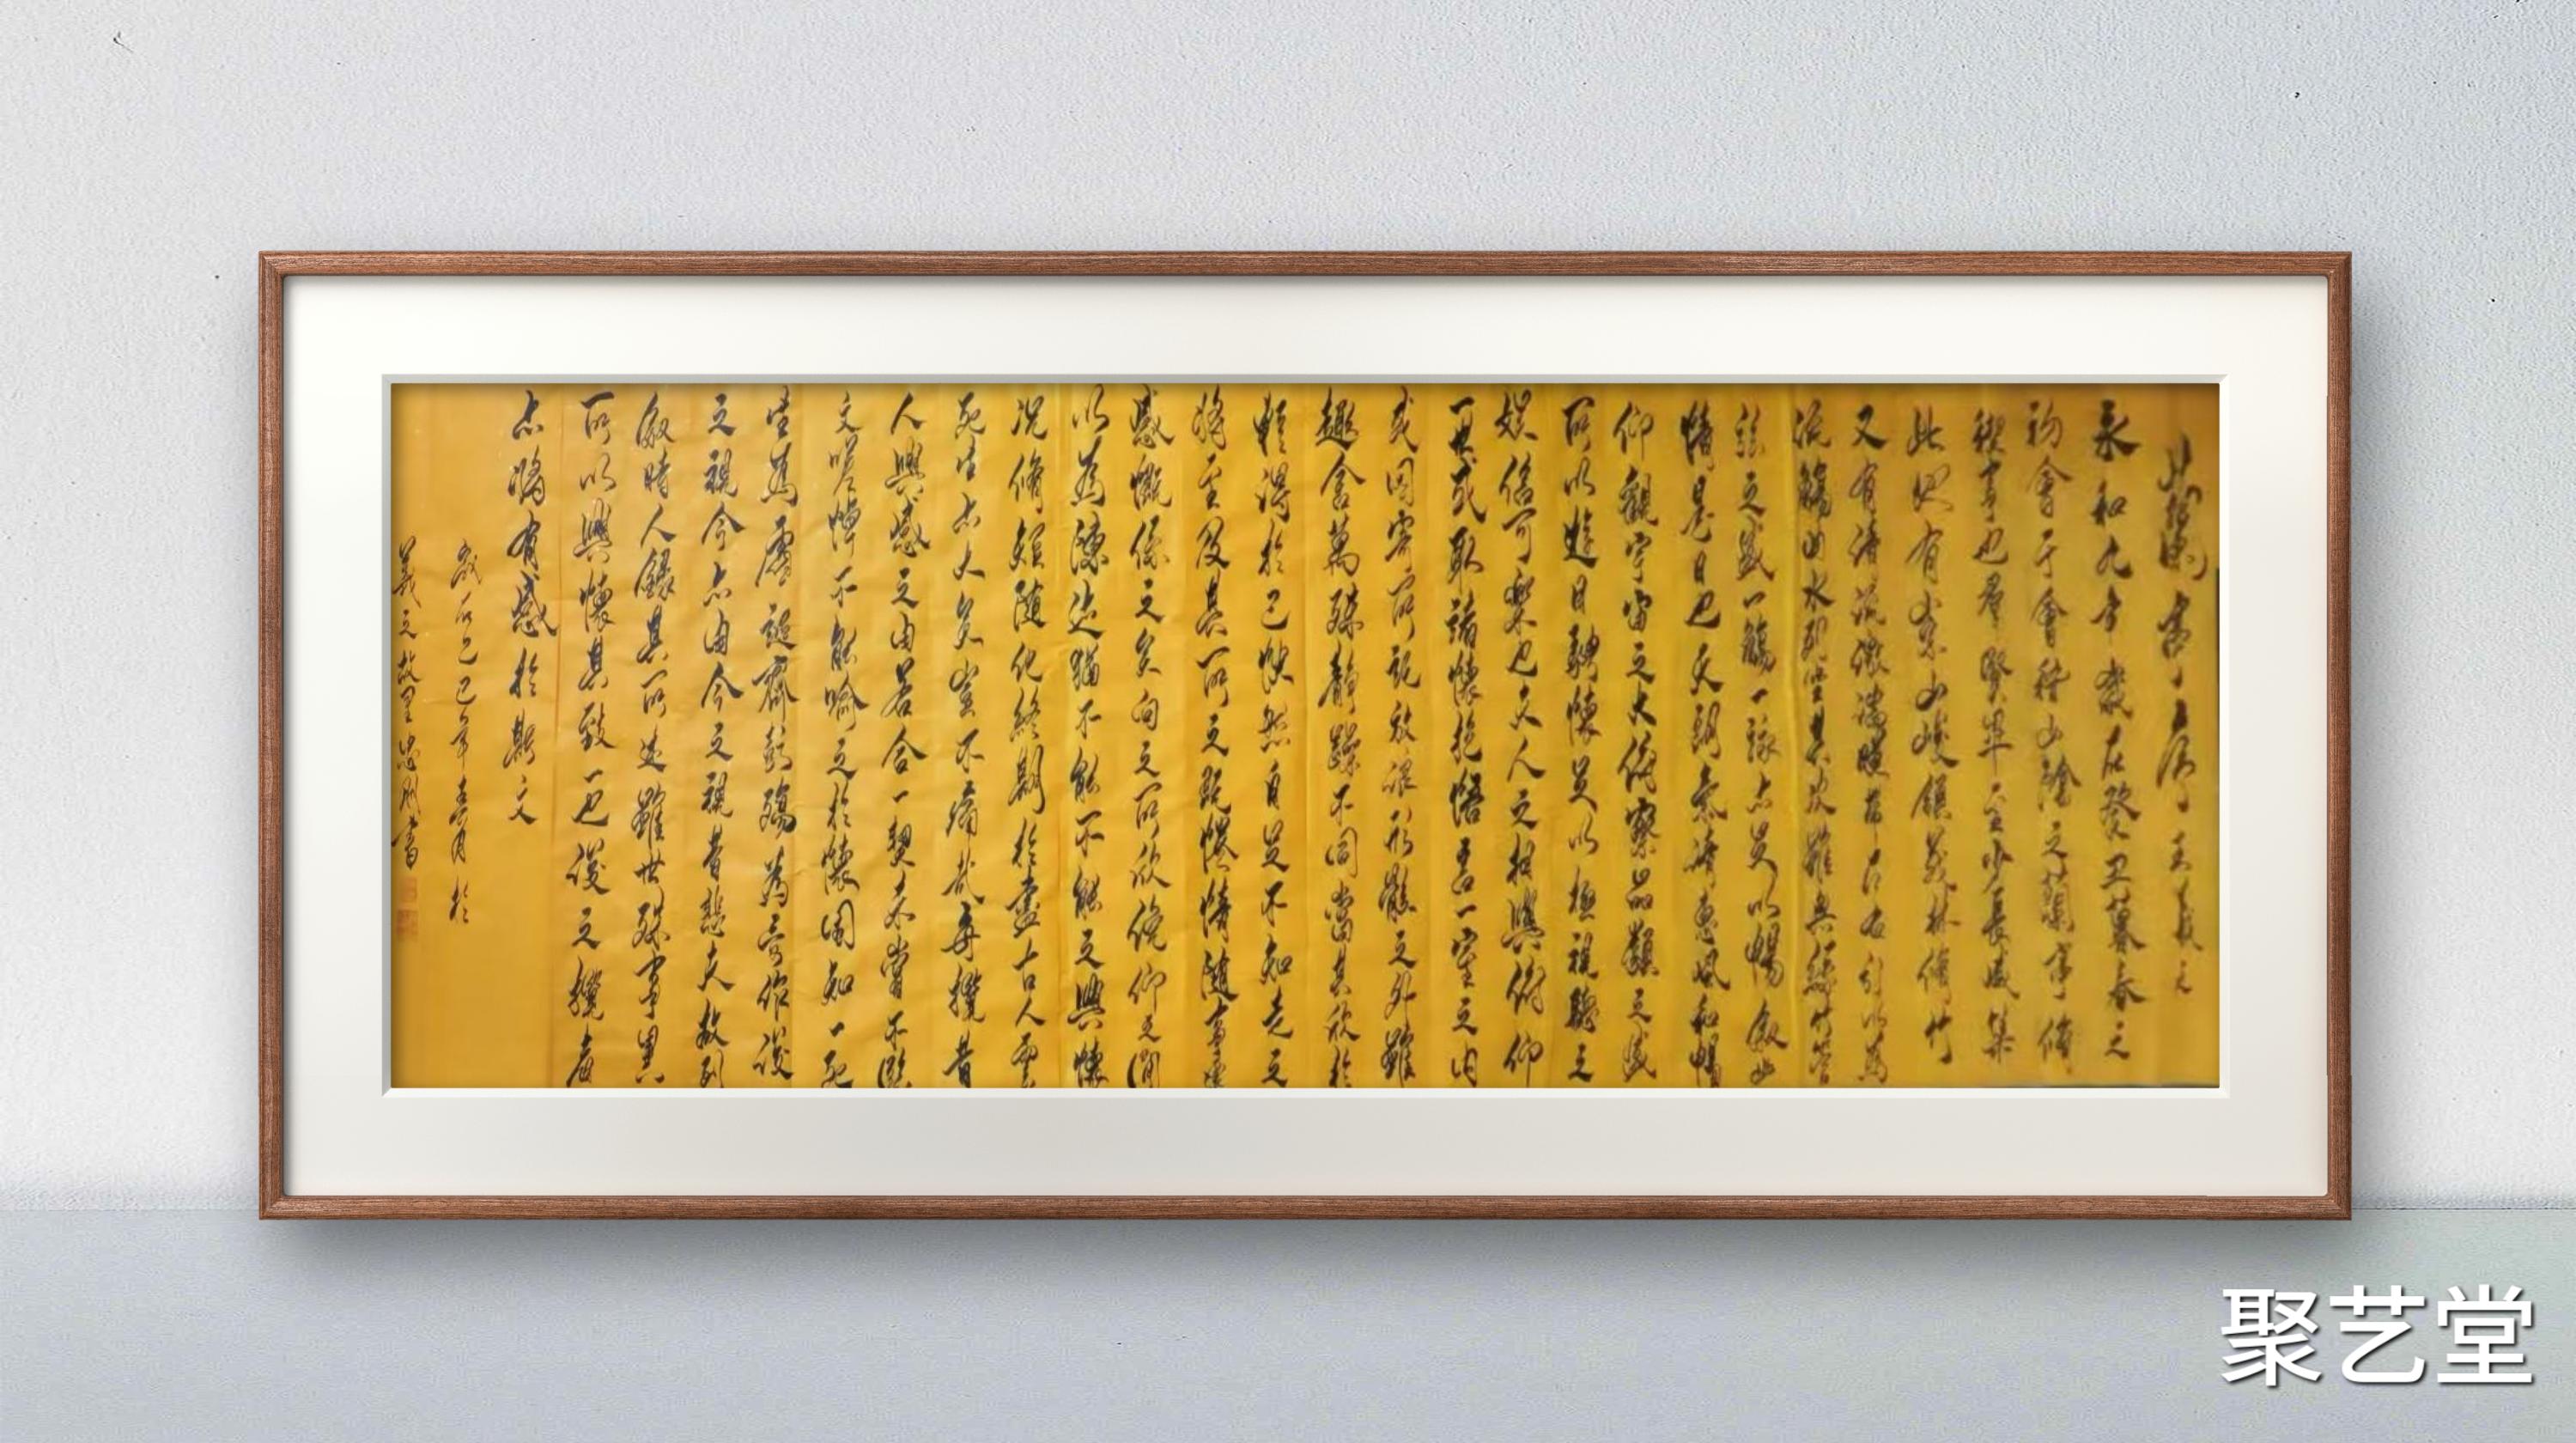 序 王羲之
永和九年歲在癸丑暮春之
初會于會稽山陰之蘭亭脩
禊事也羣賢畢至少長咸集
此地有崇山峻領茂林脩竹
又有清流激湍暎帶左右引以為
流觴曲水列坐其次雖無絲竹管
弦之盛一觴一詠亦足以暢敘幽
情是日也天朗氣清惠風和暢
仰觀宇宙之大俯察品類之盛
所以遊目騁懷足以極視聽之
娛信可樂也夫人之相與俯仰
一世或取諸懷抱悟言一室之內
或因寄所託放浪形骸之外雖
趣舍萬殊靜躁不同當其欣於
暫得於己快然自足不知老之
將至及其所之既惓情隨事遷
感慨係之矣向之所欣俛仰之間
以為陳迹猶不能不能之興懷
況脩短隨化終期於盡古人云
死生亦大矣豈不痛哉每攬昔
人興感之由若合一契未嘗不臨
文嗟悼不能喻之於懷固知一死
生為虛誕齊彭殤為妄作後
之視今亦由今之視昔悲夫故列
敘時人錄其所述雖世殊事異
所以興懷其致一也後之攬者
亦將有感於斯文
己巳年春月於
羲之故里忠剛書
聚艺堂